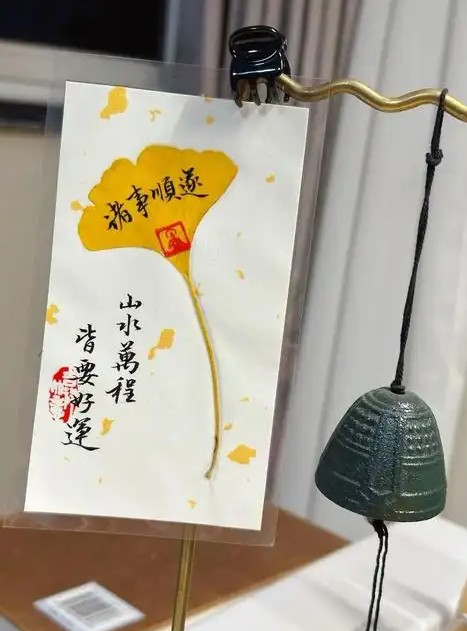 诸事順遂
山水萬程
皆要好運